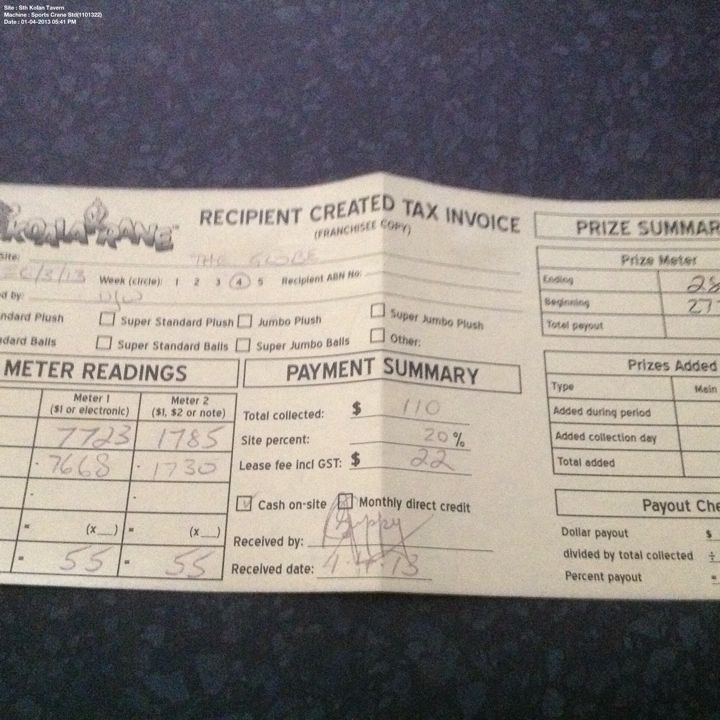 Site : Sth Kolan Tavern
Machine : Sports Crane Std(1101322)
Date : 01-04-2013 05:41 PM
KOALA KRANE™
RECIPIENT CREATED TAX INVOICE
(FRANCHISEE COPY)
Site: THE GLOBE
/3/13 Week (circle): 1 2 3 4 5 Recipient ABN No:
d by:
ndard Plush Super Standard Plush Jumbo Plush Super Jumbo Plush
dard Balls Super Standard Balls Super Jumbo Balls Other:
METER READINGS
Meter 1 Meter 2
($1 or electronic) ($1, $2 or note)
7723 1785
- 7668 - 1730
- -
= (x__) = (x__)
= 55 = 55
PAYMENT SUMMARY
Total collected: $ 110
Site percent: 20 %
Lease fee incl GST: $ 22
Cash on-site Monthly direct credit
Received by:
Received date: 1.4.13
PRIZE SUMMAR
Prize Meter
Ending 28
Beginning 27
Total payout
Prizes Added
Type Main
Added during period
Added collection day
Total added
Payout Che
Dollar payout $
divided by total collected ÷
Percent payout =